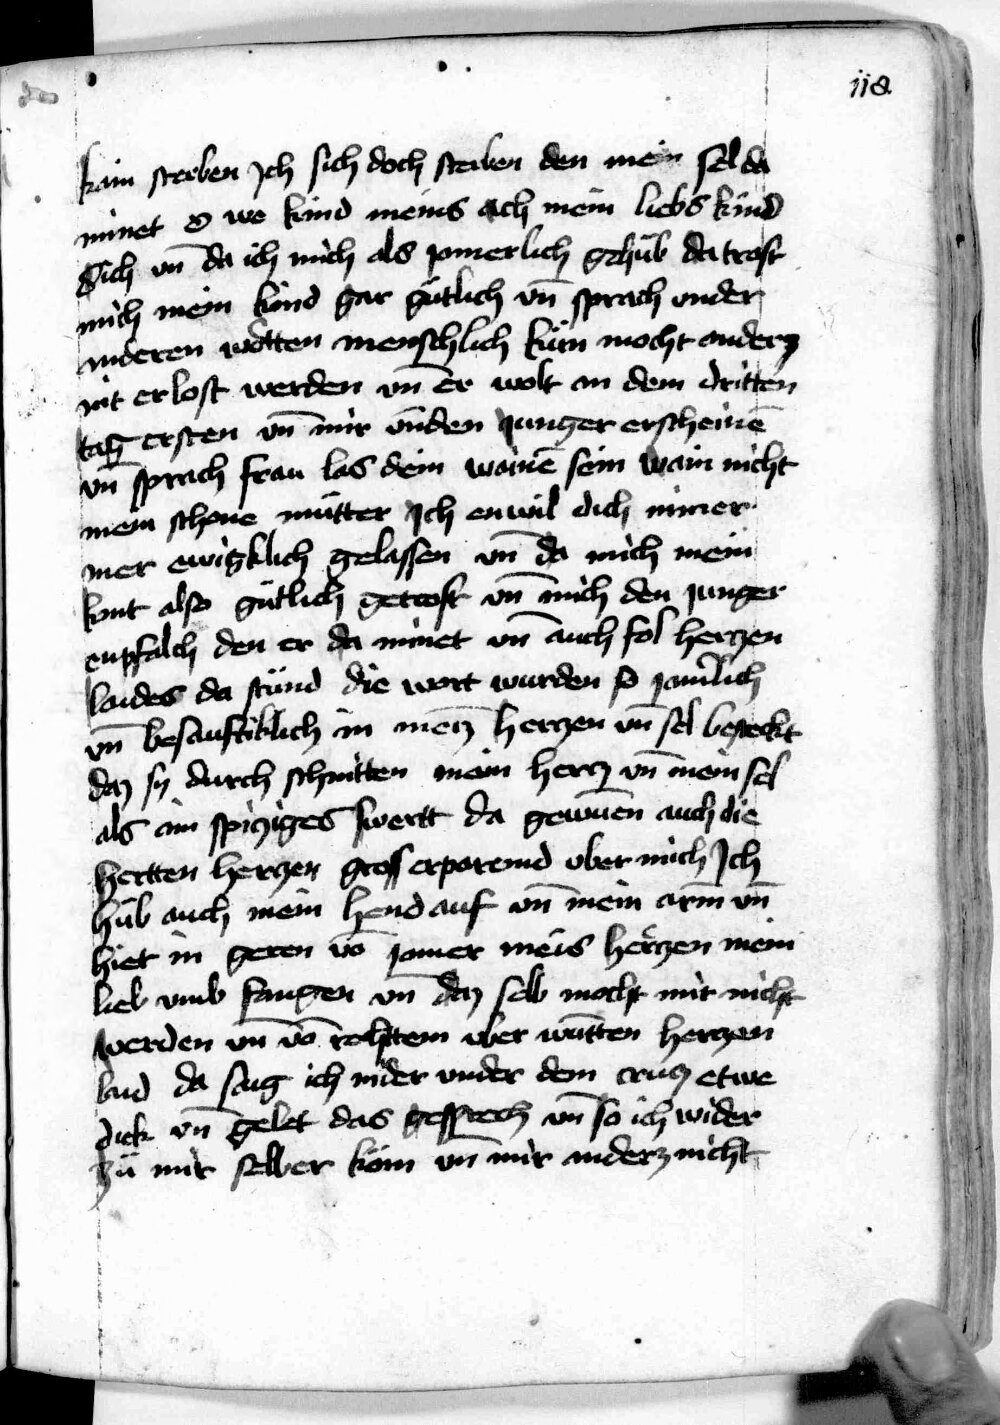 118
kain sterben Ich sich doch sterben den mein sel da
minet O we kind meins ach mein liebs kind
Sich vn̄ da ich mich als jomerlich gehüb da trost
mich mein kind gar gütlich vn̄ sprach vnder
anderen wortten menschlich kün mocht anderz
nit erlost werden vn̄ er wolt an dem dritten
tag ersten vn̄ mir vn̄ den junger erscheinē
vn̄ sprach frau las dein wainē sein wain nicht
mein schone mütter Ich enwil dich nimer
mer ewigklich gelassen vn̄ da mich mein
kint also gütlich getrost vn̄ mich den junger
enpfalch den er da minet vn̄ auch fol herczen
laides da stünd die wort wurden so jam̄lich
vn̄ besauftiklich in mein herczen vn̄ sel besteckt
daz sy durch schnitten mein hercz vn̄ mein sel
als ain spicziges swertt da gewunen auch die
hertten herczen gross erparemd vber mich Ich
hüb auch mein hend auf vn̄ mein arm vn̄
hiet in geren vō jomer meis herczen mein
lieb vmb fangen vn̄ daz selb mocht mir nicht
werden vn̄ vō rechttem vber wūtten herczen
laid da saig ich nider vnder dem crucz etwe
dick vn̄ gelet das gesprech vn̄ so ich wider
zü mir selber köm vn̄ mir anderz nicht